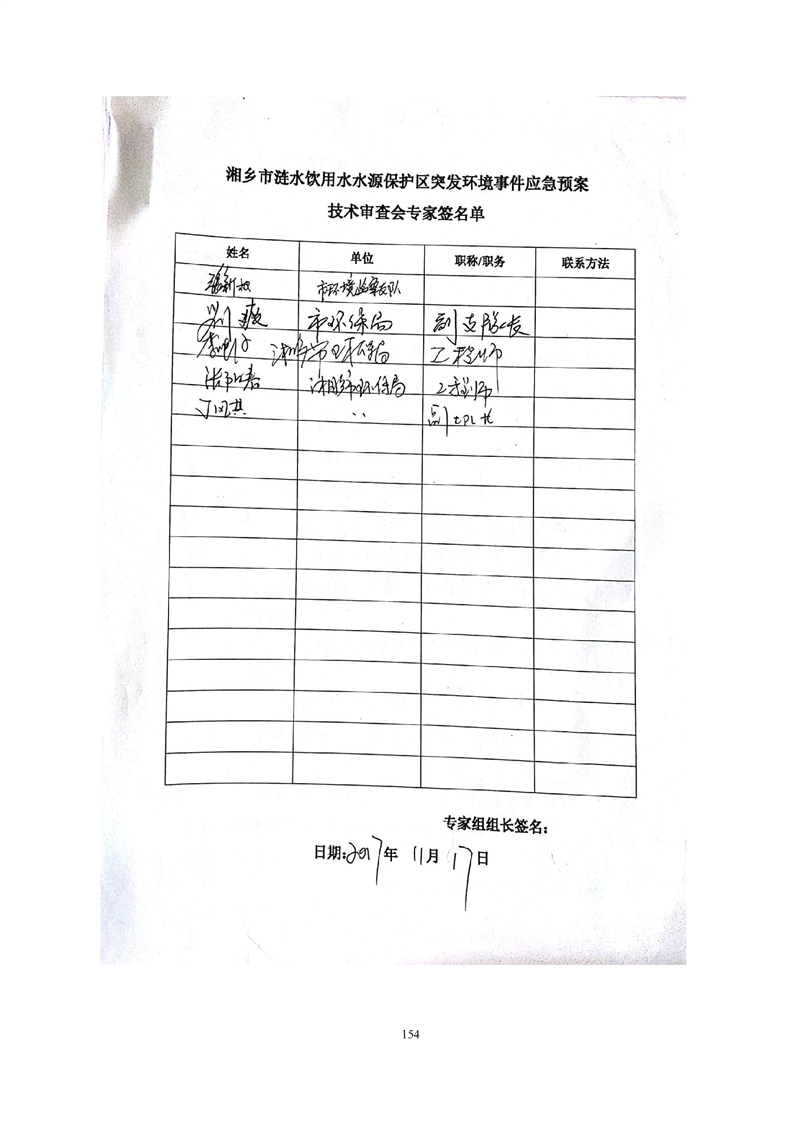 湘乡市涟水饮用水水源保护区突发环境事件应急预案
技术审查会专家签名单
姓名 单位 职称/职务 联系方法
市环境监察支队
刘 市环保局 副支队长
湘乡市环保局 工程师
湘乡市环保局 工程师
丁 〃 副
专家组组长签名:
日期:2017年 11月 17日
154